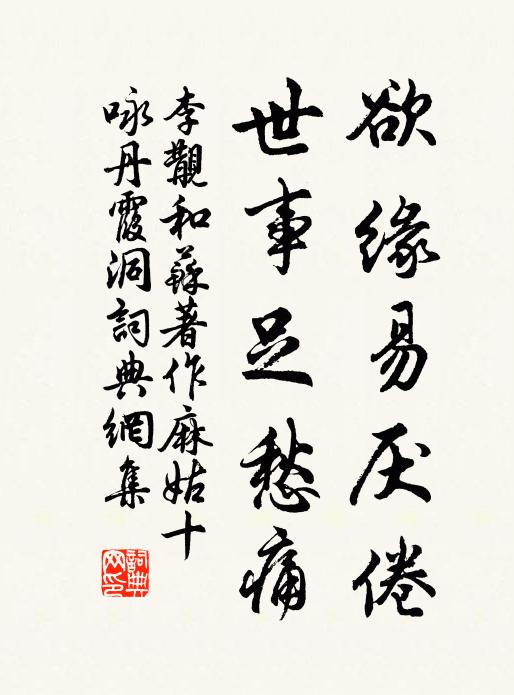 欲缘易厌倦
世事足愁痛
李觏和蘇著作麻姑十
咏丹霞洞詞典網集
詞典
网印